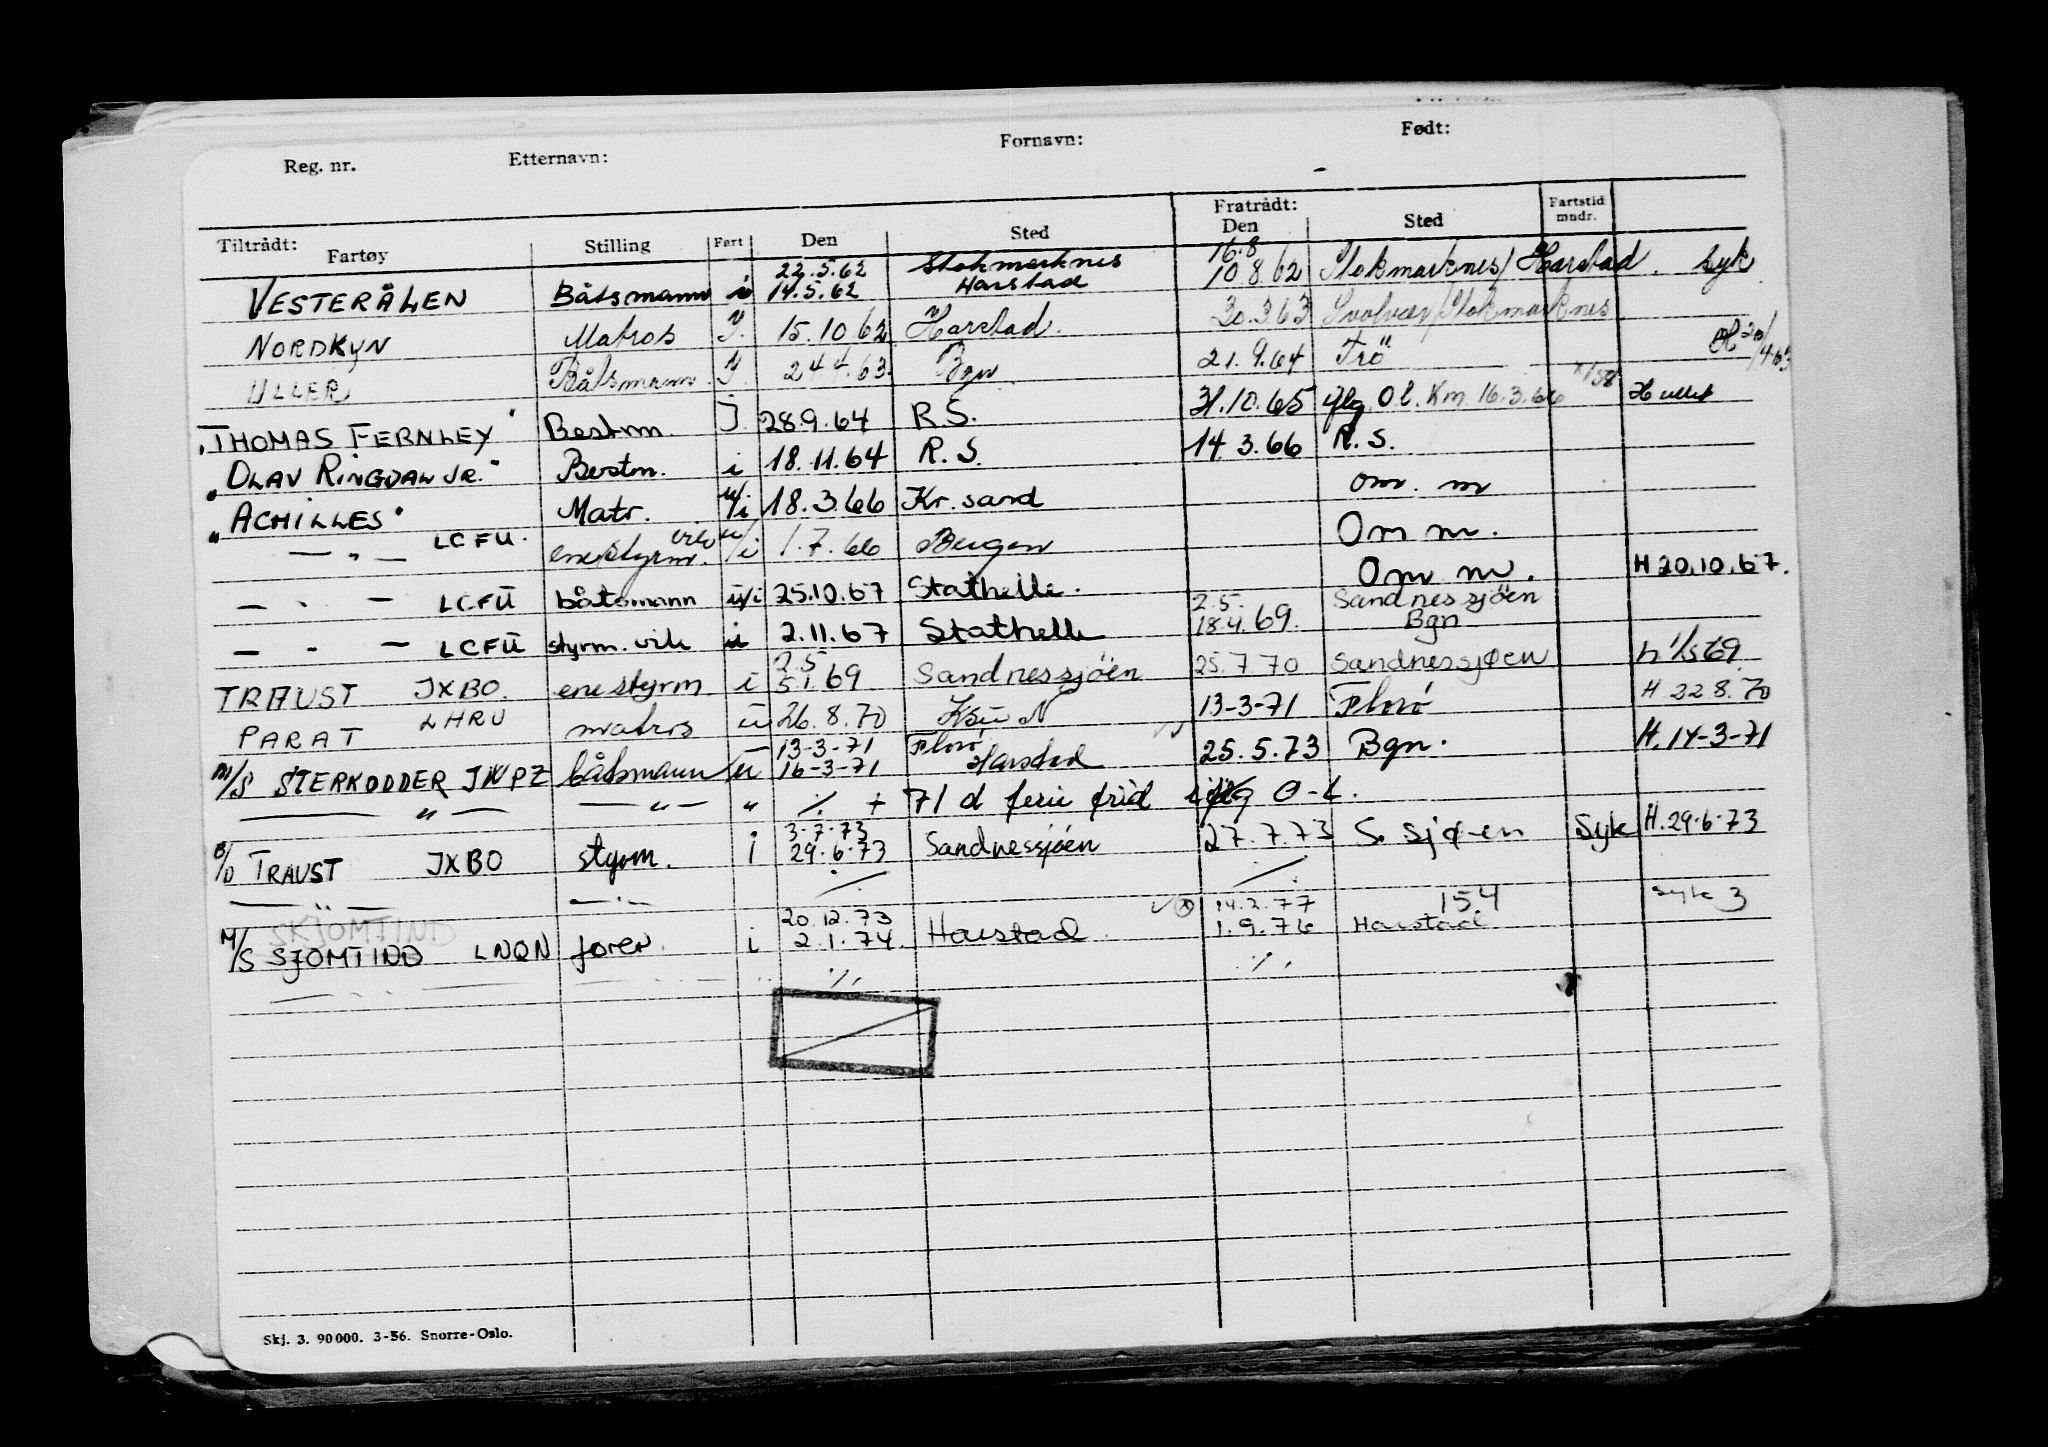 Reg. nr. Etternavn: Fornavn: Født:
Tiltrådt: Fratrådt:
Fartøy Stilling Fart Den Sted Den Sted Fartstid mndr.
22.5.62 Stokmarknes 16.8
VESTERÅLEN Båtsmann i 14.5.62 Harstad 10.8.62 Stokmarknes/Harstad. Syk
NORDKYN Matros 15.10.62 Harstad. 30.3.63 Svolvær/Stokmarknes
ULLER Båtsmann 24.4.63. Bgn 21.9.64 Trö 20/4.63
"THOMAS FERNLEY" Bestm. J. 28.9.64 R.S. 31.10.65 iflg. O l. Km 16.3.66
"OLAV RINGDAL JR." Bestm. i 18.11.64 R.S. 14.3.66 R.S.
"ACHILLES" Matr. u/i 18.3.66 Kr.sand om. m
— " — LCFU. enestyrm. vik u/i 1.7.66 Bergen Om m.
— " — LCFU båtsmann u/i 25.10.67 Stathelle. Om m. H 20.10.67.
2.5. Sandnessjöen
— " — LCFU styrm. vik 2.11.67 Stathelle 18.4.69. Bgn
2.5
TRAUST JXBO. enestyrm i 5.1.69 Sandnessjöen 25.7.70 Sandnessjøen h 1/5 69
PARAT LHRU matros u 26.8.70 Ksu N 13-3-71 Florö H 22 8.70
13-3-71 Florö
M/S STERKODDER JWPZ båtsmann u 16-3-71 Harstad 25.5.73 Bgn. H. 14-3-71
— " — — " — " ·/· + 71 d ferie frid iflg O-L.
3-7-73
B/D TRAUST JXBO styrm. i 29.6.73 Sandnessjöen 27.7.73 S. sjøen Syk H. 29.6.73
— " — — " — ·/· ·/·
SKJOMTIND 20.12.73 14.2.77 154 syk 3
M/S SJOMTIND LNQN fører. i 2.1.74 Harstad 1.9.76 Harstad
·/· ·/·
Skj. 3. 90000. 3-56. Snorre-Oslo.